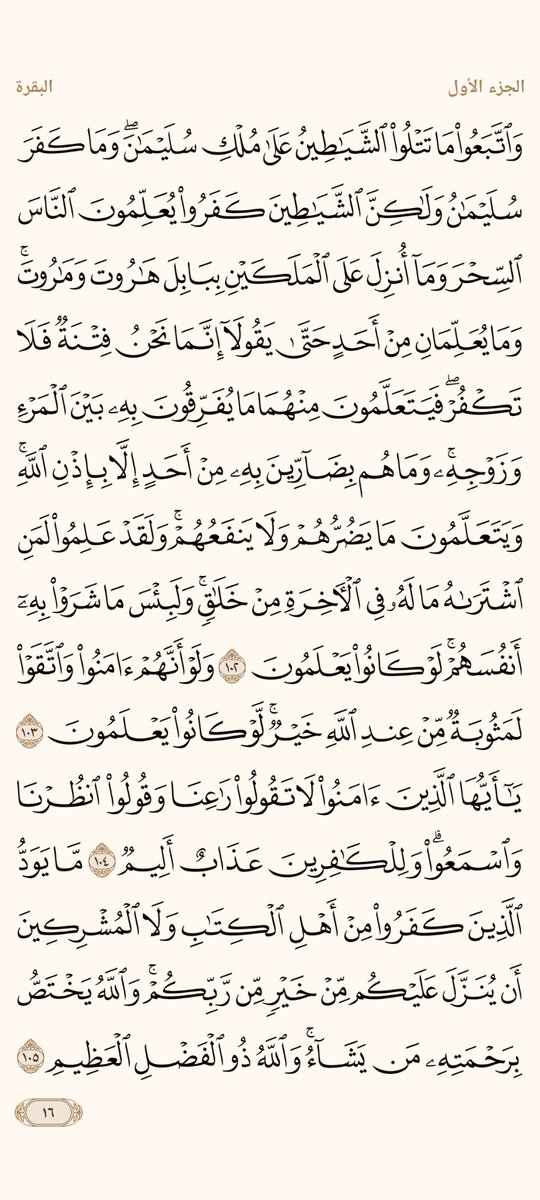 الجزء الأول
البقرة
وَٱتَّبَعُوا۟ مَا تَتْلُوا۟ ٱلشَّيَـٰطِينُ عَلَىٰ مُلْكِ سُلَيْمَـٰنَ ۖ وَمَا كَفَرَ
سُلَيْمَـٰنُ وَلَـٰكِنَّ ٱلشَّيَـٰطِينَ كَفَرُوا۟ يُعَلِّمُونَ ٱلنَّاسَ
ٱلسِّحْرَ وَمَآ أُنزِلَ عَلَى ٱلْمَلَكَيْنِ بِبَابِلَ هَـٰرُوتَ وَمَـٰرُوتَ ۚ
وَمَا يُعَلِّمَانِ مِنْ أَحَدٍ حَتَّىٰ يَقُولَآ إِنَّمَا نَحْنُ فِتْنَةٌ فَلَا
تَكْفُرْ ۖ فَيَتَعَلَّمُونَ مِنْهُمَا مَا يُفَرِّقُونَ بِهِۦ بَيْنَ ٱلْمَرْءِ
وَزَوْجِهِۦ ۚ وَمَا هُم بِضَآرِّينَ بِهِۦ مِنْ أَحَدٍ إِلَّا بِإِذْنِ ٱللَّهِ ۚ
وَيَتَعَلَّمُونَ مَا يَضُرُّهُمْ وَلَا يَنفَعُهُمْ ۚ وَلَقَدْ عَلِمُوا۟ لَمَنِ
ٱشْتَرَىٰهُ مَا لَهُۥ فِى ٱلْـَٔاخِرَةِ مِنْ خَلَـٰقٍ ۚ وَلَبِئْسَ مَا شَرَوْا۟ بِهِۦٓ
أَنفُسَهُمْ ۚ لَوْ كَانُوا۟ يَعْلَمُونَ ١٠٢ وَلَوْ أَنَّهُمْ ءَامَنُوا۟ وَٱتَّقَوْا۟
لَمَثُوبَةٌ مِّنْ عِندِ ٱللَّهِ خَيْرٌ ۖ لَّوْ كَانُوا۟ يَعْلَمُونَ ١٠٣
يَـٰٓأَيُّهَا ٱلَّذِينَ ءَامَنُوا۟ لَا تَقُولُوا۟ رَٰعِنَا وَقُولُوا۟ ٱنظُرْنَا
وَٱسْمَعُوا۟ ۗ وَلِلْكَـٰفِرِينَ عَذَابٌ أَلِيمٌ ١٠٤ مَّا يَوَدُّ
ٱلَّذِينَ كَفَرُوا۟ مِنْ أَهْلِ ٱلْكِتَـٰبِ وَلَا ٱلْمُشْرِكِينَ
أَن يُنَزَّلَ عَلَيْكُم مِّنْ خَيْرٍ مِّن رَّبِّكُمْ ۚ وَٱللَّهُ يَخْتَصُّ
بِرَحْمَتِهِۦ مَن يَشَآءُ ۚ وَٱللَّهُ ذُو ٱلْفَضْلِ ٱلْعَظِيمِ ١٠٥
١٦